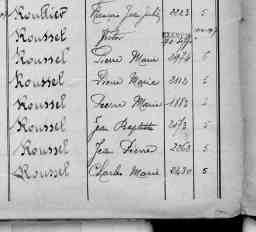 Rouhier François Jean Jules 2223 5
Roussel Victor
Roussel Pierre Marie 2974 5
Roussel Pierre Marie 2112 5
Roussel Pierre Marie 1183 5
Roussel Jean Baptiste 2073 5
Roussel Jean Pierre 2063 5
Roussel Charles Marie 2430 5